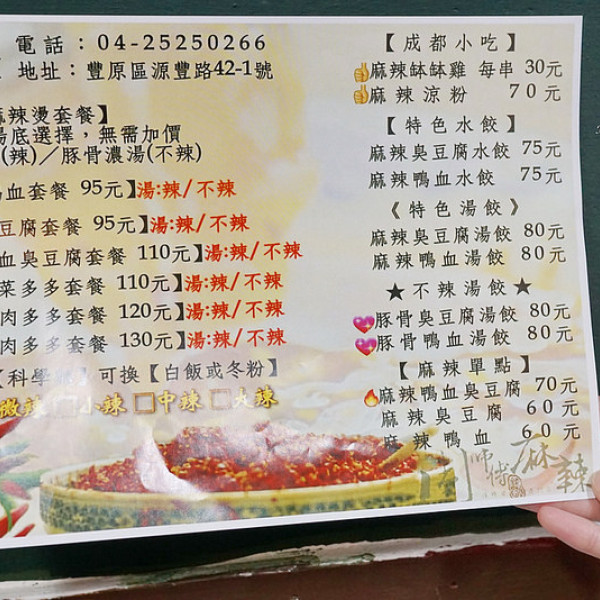 電話：04-25250266
地址：豐原區源豐路42-1號
麻辣燙套餐】
湯底選擇，無需加價
(辣)／豚骨濃湯(不辣)
鴨血套餐 95元】湯:辣/不辣
豆腐套餐 95元】湯:辣/不辣
血臭豆腐套餐 110元】湯:辣/不辣
菜多多套餐 110元】湯:辣/不辣
肉多多套餐 120元】湯:辣/不辣
肉多多套餐 130元】湯:辣/不辣
【科學麵】可換【白飯或冬粉】
微辣 □小辣 □中辣 □大辣
【成都小吃】
麻辣缽缽雞 每串 30元
麻辣涼粉 70元
【特色水餃】
麻辣臭豆腐水餃 75元
麻辣鴨血水餃 75元
《特色湯餃》
麻辣臭豆腐湯餃 80元
麻辣鴨血湯餃 80元
★不辣湯餃★
豚骨臭豆腐湯餃 80元
豚骨鴨血湯餃 80元
【麻辣單點】
麻辣鴨血臭豆腐 70元
麻辣臭豆腐 60元
麻辣鴨血 60元
師傅麻辣